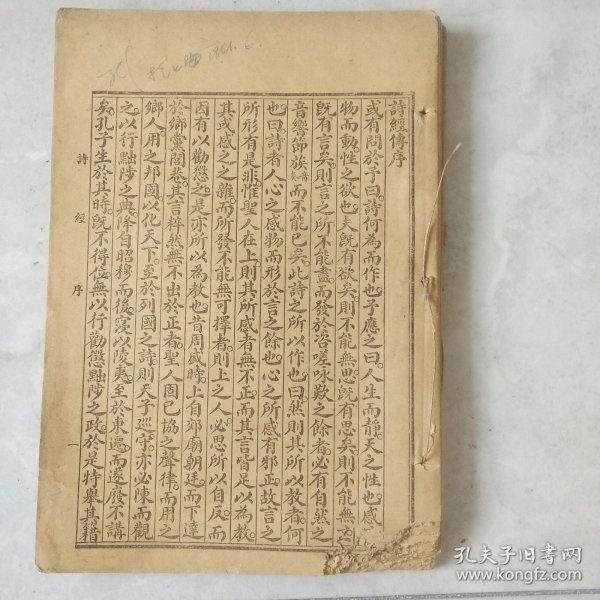 詩經傳序
或有問於予曰詩何為而作也予應之曰人生而靜天之性也感於
物而動性之欲也夫既有欲矣則不能無思既有思矣則不能無言
既有言矣則言之所不能盡而發於咨嗟咏歎之餘者必有自然之
音響節族音奏而不能已矣此詩之所以作也曰然則其所以教者何
也曰詩者人心之感物而形於言之餘也心之所感有邪正故言之
所形有是非惟聖人在上則其所感者無不正而其言皆足以為教
其或感之之雜而所發不能無可擇者則上之人必思所以自反而
因有以勸懲之是亦所以為教也昔周盛時上自郊廟朝廷而下達
於鄉黨閭巷其言粹然無不出於正者聖人固已協之聲律而用之
鄉人用之邦國以化天下至於列國之詩則天子巡守亦必陳而觀
之以行黜陟之典降自昭穆而後寖以陵夷至於東遷而遂廢不講
矣孔子生於其時既不得位無以行勸懲黜陟之政於是特舉其籍
詩經 序 一
孔夫子旧书网
www.kongfz.com